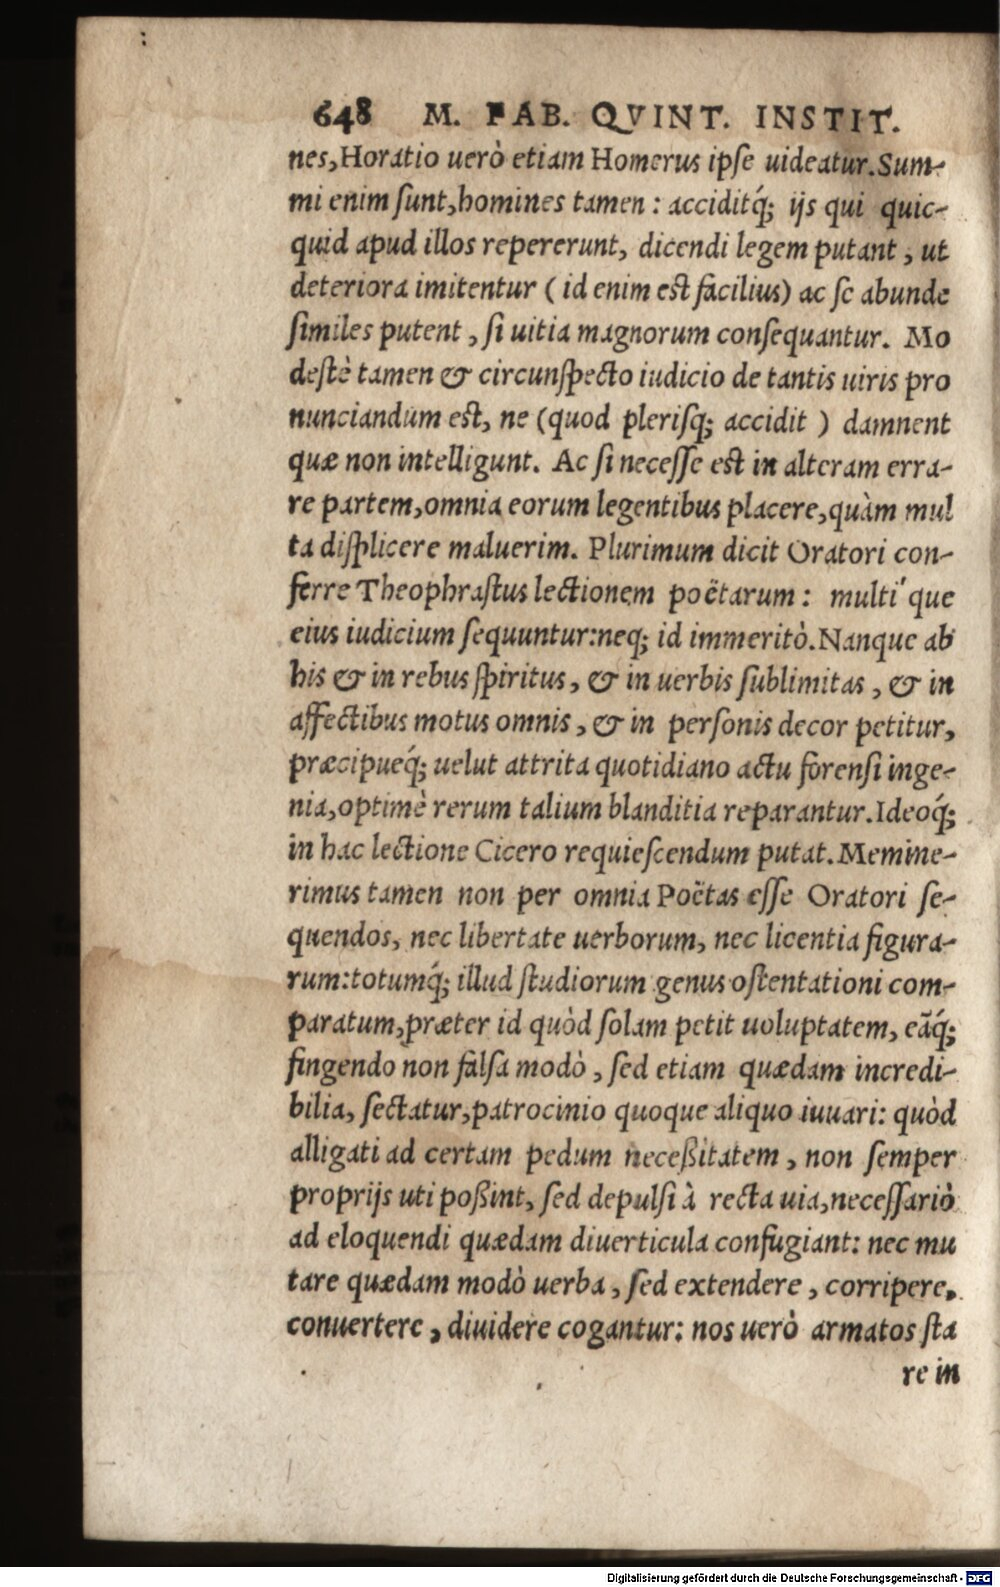 648 M. FAB. QVINT. INSTIT.
nes, Horatio uerò etiam Homerus ipſe uideatur. Sum-
mi enim ſunt, homines tamen: acciditq́; ijs qui quic-
quid apud illos repererunt, dicendi legem putant, ut
deteriora imitentur (id enim est facilius) ac ſe abunde
ſimiles putent, ſi uitia magnorum conſequantur. Mo
deſtè tamen & circunſpecto iudicio de tantis uiris pro
nunciandum est, ne (quod pleriſq; accidit) damnent
quæ non intelligunt. Ac ſi neceſſe est in alteram erra-
re partem, omnia eorum legentibus placere, quàm mul
ta diſplicere maluerim. Plurimum dicit Oratori con-
ferre Theophraſtus lectionem poëtarum: multi´que
eius iudicium ſequuntur: neq; id immeritò. Nanque ab
his & in rebus ſpiritus, & in uerbis ſublimitas, & in
affectibus motus omnis, & in perſonis decor petitur,
præcipueq́; uelut attrita quotidiano actu forenſi inge-
nia, optimè rerum talium blanditia reparantur. Ideoq́;
in hac lectione Cicero requieſcendum putat. Memine-
rimus tamen non per omnia Poëtas eſſe Oratori ſe-
quendos, nec libertate uerborum, nec licentia figura-
rum: totumq́; illud ſtudiorum genus oſtentationi com-
paratum, præter id quòd ſolam petit uoluptatem, eãq́;
fingendo non falſa modò, ſed etiam quædam incredi-
bilia, ſectatur, patrocinio quoque aliquo iuuari: quòd
alligati ad certam pedum neceßitatem, non ſemper
proprijs uti poßint, ſed depulſi à recta uia, neceſſariò
ad eloquendi quædam diuerticula confugiant: nec mu
tare quædam modò uerba, ſed extendere, corripere,
conuertere, diuidere cogantur: nos uerò armatos ſta
re in
Digitalisierung gefördert durch die Deutsche Forschungsgemeinschaft - DFG